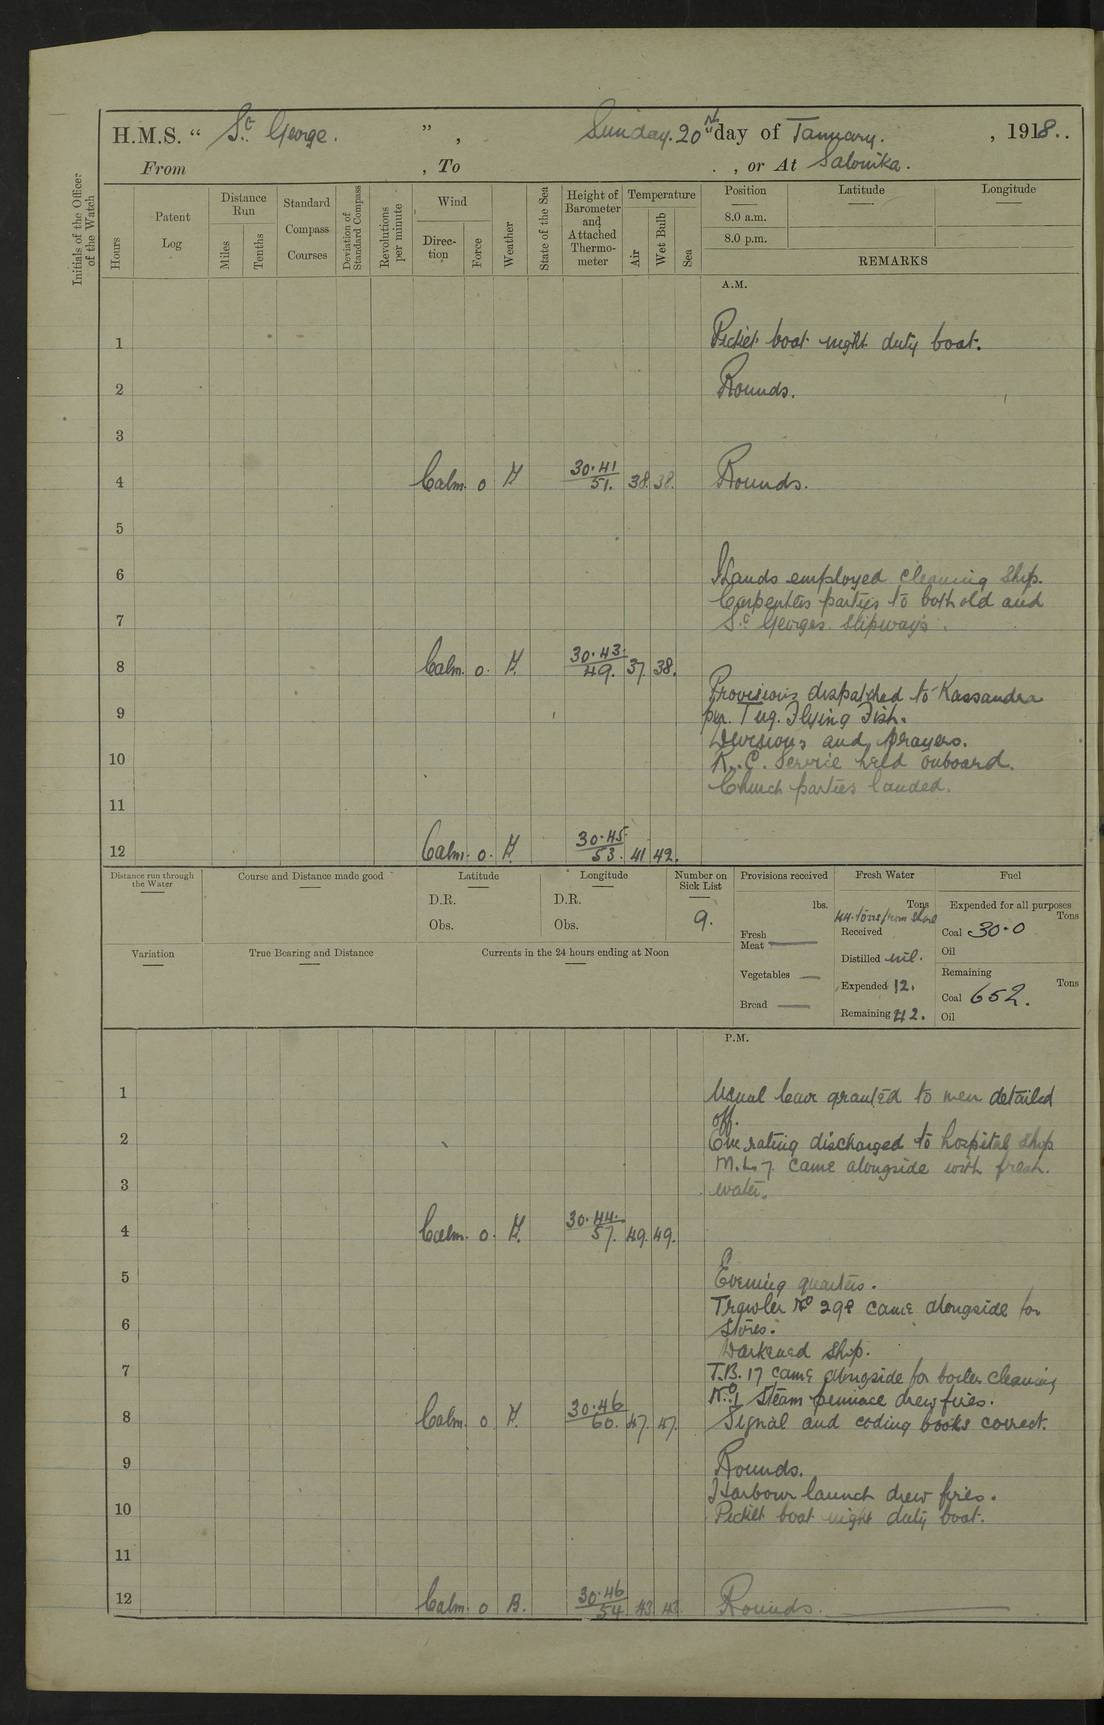 H.M.S. “ St George. ” , Sunday. 20th day of January. , 1918..
From , To , or At Salonika.
Initials of the Officer of the Watch
Hours
Patent Log
Distance Run
Miles
Tenths
Standard Compass Courses
Deviation of Standard Compass
Revolutions per minute
Wind
Direction
Force
Weather
State of the Sea
Height of Barometer and Attached Thermometer
Temperature
Air
Wet Bulb
Sea
Position
8.0 a.m.
8.0 p.m.
Latitude
Longitude
REMARKS
A.M.
1 Picket boat night duty boat.
2 Rounds.
3
4 Calm. 0 30.41 51. 38. 38. Rounds.
5
6 Hands employed cleaning ship.
Carpenters parties to both old and
7 St Georges slipways.
8 Calm. 0. 30.43. 49. 37. 38.
Provisions dispatched to Kassandra
9 per. Tug. Flying Fish.
Divisions and prayers.
10 R.C. Service held onboard.
Church parties landed.
11
12 Calm. 0. 30.45. 53. 41 42.
Distance run through the Water
Course and Distance made good
Latitude
D.R.
Obs.
Longitude
D.R.
Obs.
Number on Sick List
9.
Provisions received
lbs.
Fresh Meat —
Vegetables —
Bread —
Fresh Water
Tons
44. tons from shore
Received
Distilled nil.
Expended 12.
Remaining 42.
Fuel
Expended for all purposes
Tons
Coal 30.0
Oil
Remaining
Tons
Coal 652.
Oil
Variation
True Bearing and Distance
Currents in the 24 hours ending at Noon
P.M.
1 Usual leave granted to men detailed
off.
2 One rating discharged to hospital ship
M.L.7. came alongside with fresh.
3 water.
4 Calm. 0. 30.44. 57. 49. 49.
5 Evening quarters.
Trawler No 298 came alongside for
6 stores.
Darkened ship.
7 T.B. 17 came alongside for boiler cleaning
No. 1 Steam pinnace drew fires.
8 Calm. 0 30.46 60. 47. 47. Signal and coding books correct.
9 Rounds.
Harbour launch drew fires.
10 Picket boat night duty boat.
11
12 Calm. 0 B. 30.46 54 43. 43. Rounds.